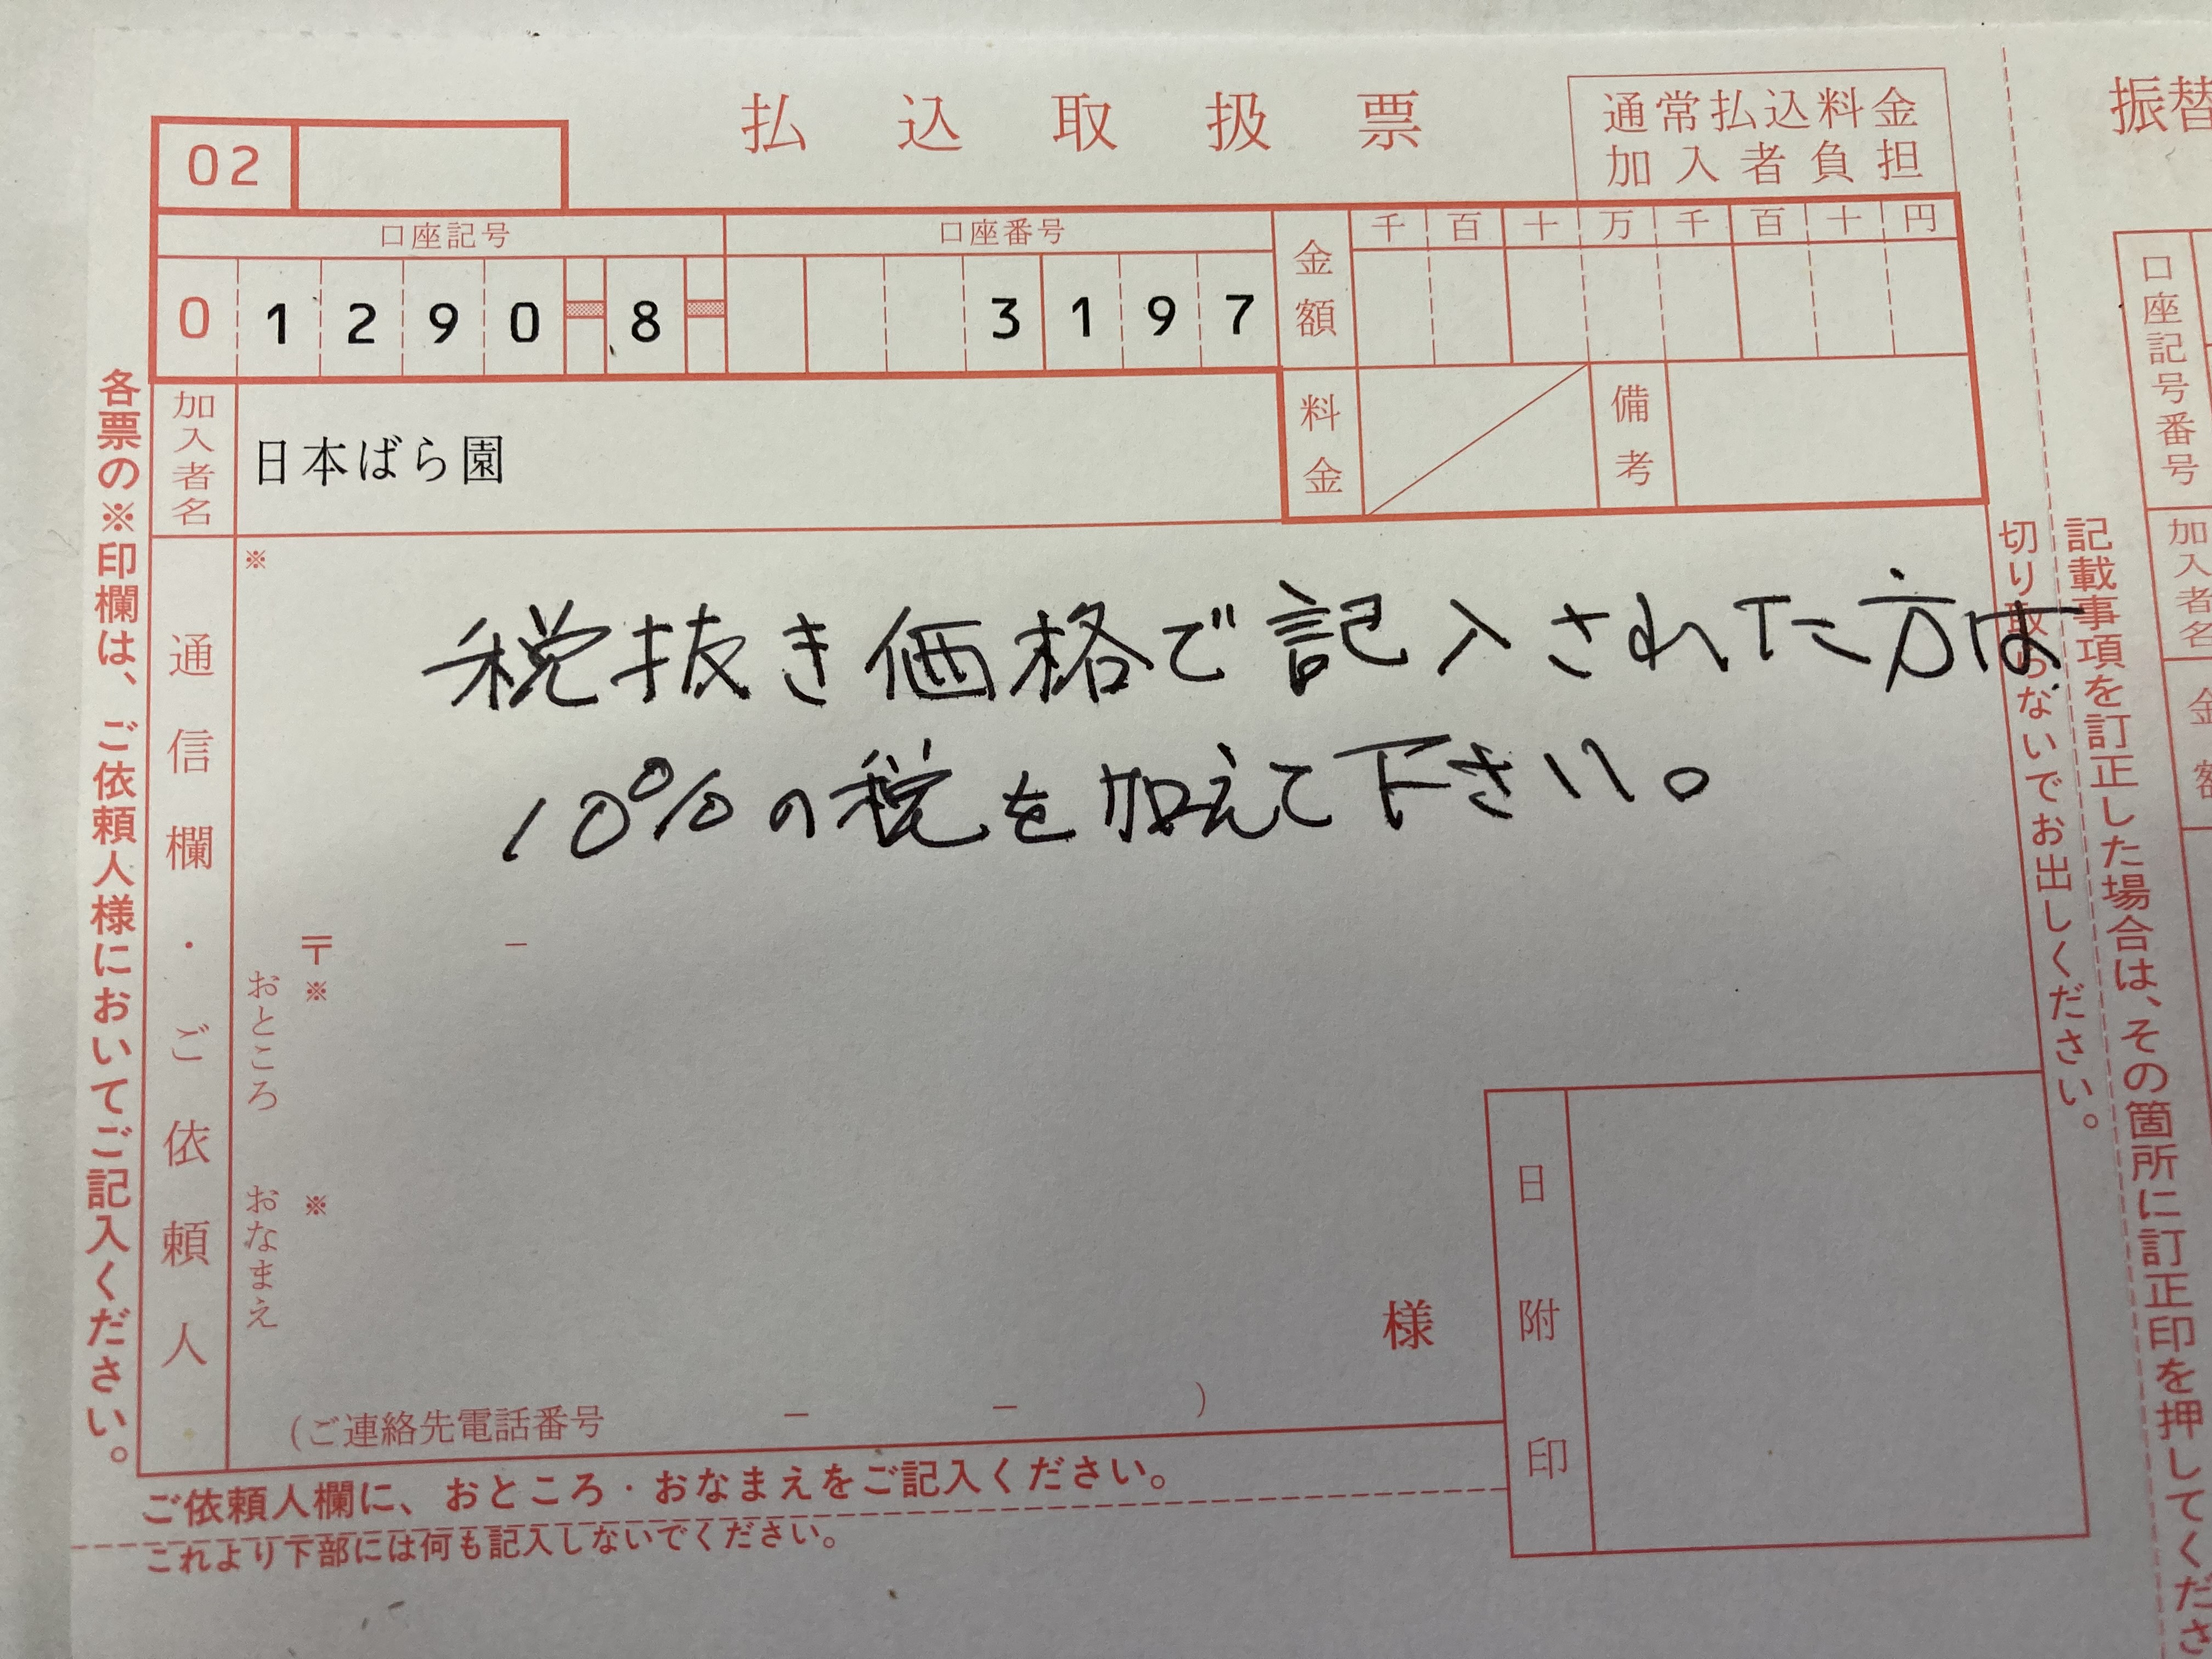 払込取扱票
通常払込料金
加入者負担
振替
02
口座記号
口座番号
金額
千百十万千百十円
01290-8-3197
料金
備考
加入者名
日本ばら園
※
税抜き価格で記入された方は
10%の税を加えて下さい。
通信欄・ご依頼人
〒 -
※
おところ
おなまえ
※
様
(ご連絡先電話番号 - - )
日附印
各票の※印欄は、ご依頼人様においてご記入ください。
ご依頼人欄に、おところ・おなまえをご記入ください。
これより下部には何も記入しないでください。
切り取らないでお出しください。
記載事項を訂正した場合は、その箇所に訂正印を押してくださ
口座記号番号
加入者名
金額